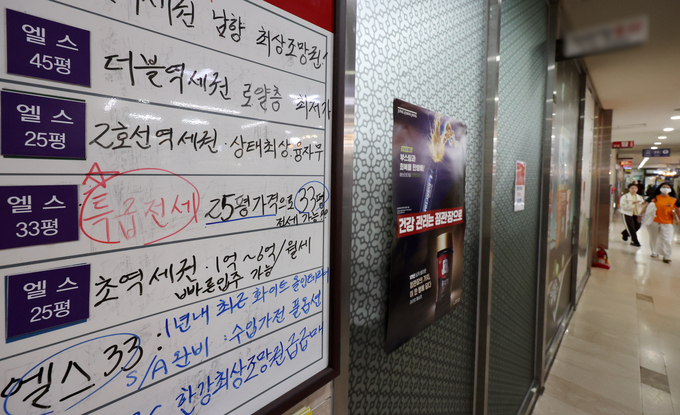 역세권 남향 최상조망
엘스
45평
더블역세권 로얄층 최저가
엘스
25평
2호선역세권·상태최상.융자무
엘스
33평
특올전세
25평가격으로 33평
전세 가능
엘스
25평
초역세권·1억~6억/월세
빠른입주 가능
엘스 33
:1년내 최근 화이트 올인테리어
S/A완비·수입가전 풀옵션
한강최상조망 급급매
부스팅과
회복을 한방에!
건강 관리는 정관장으로